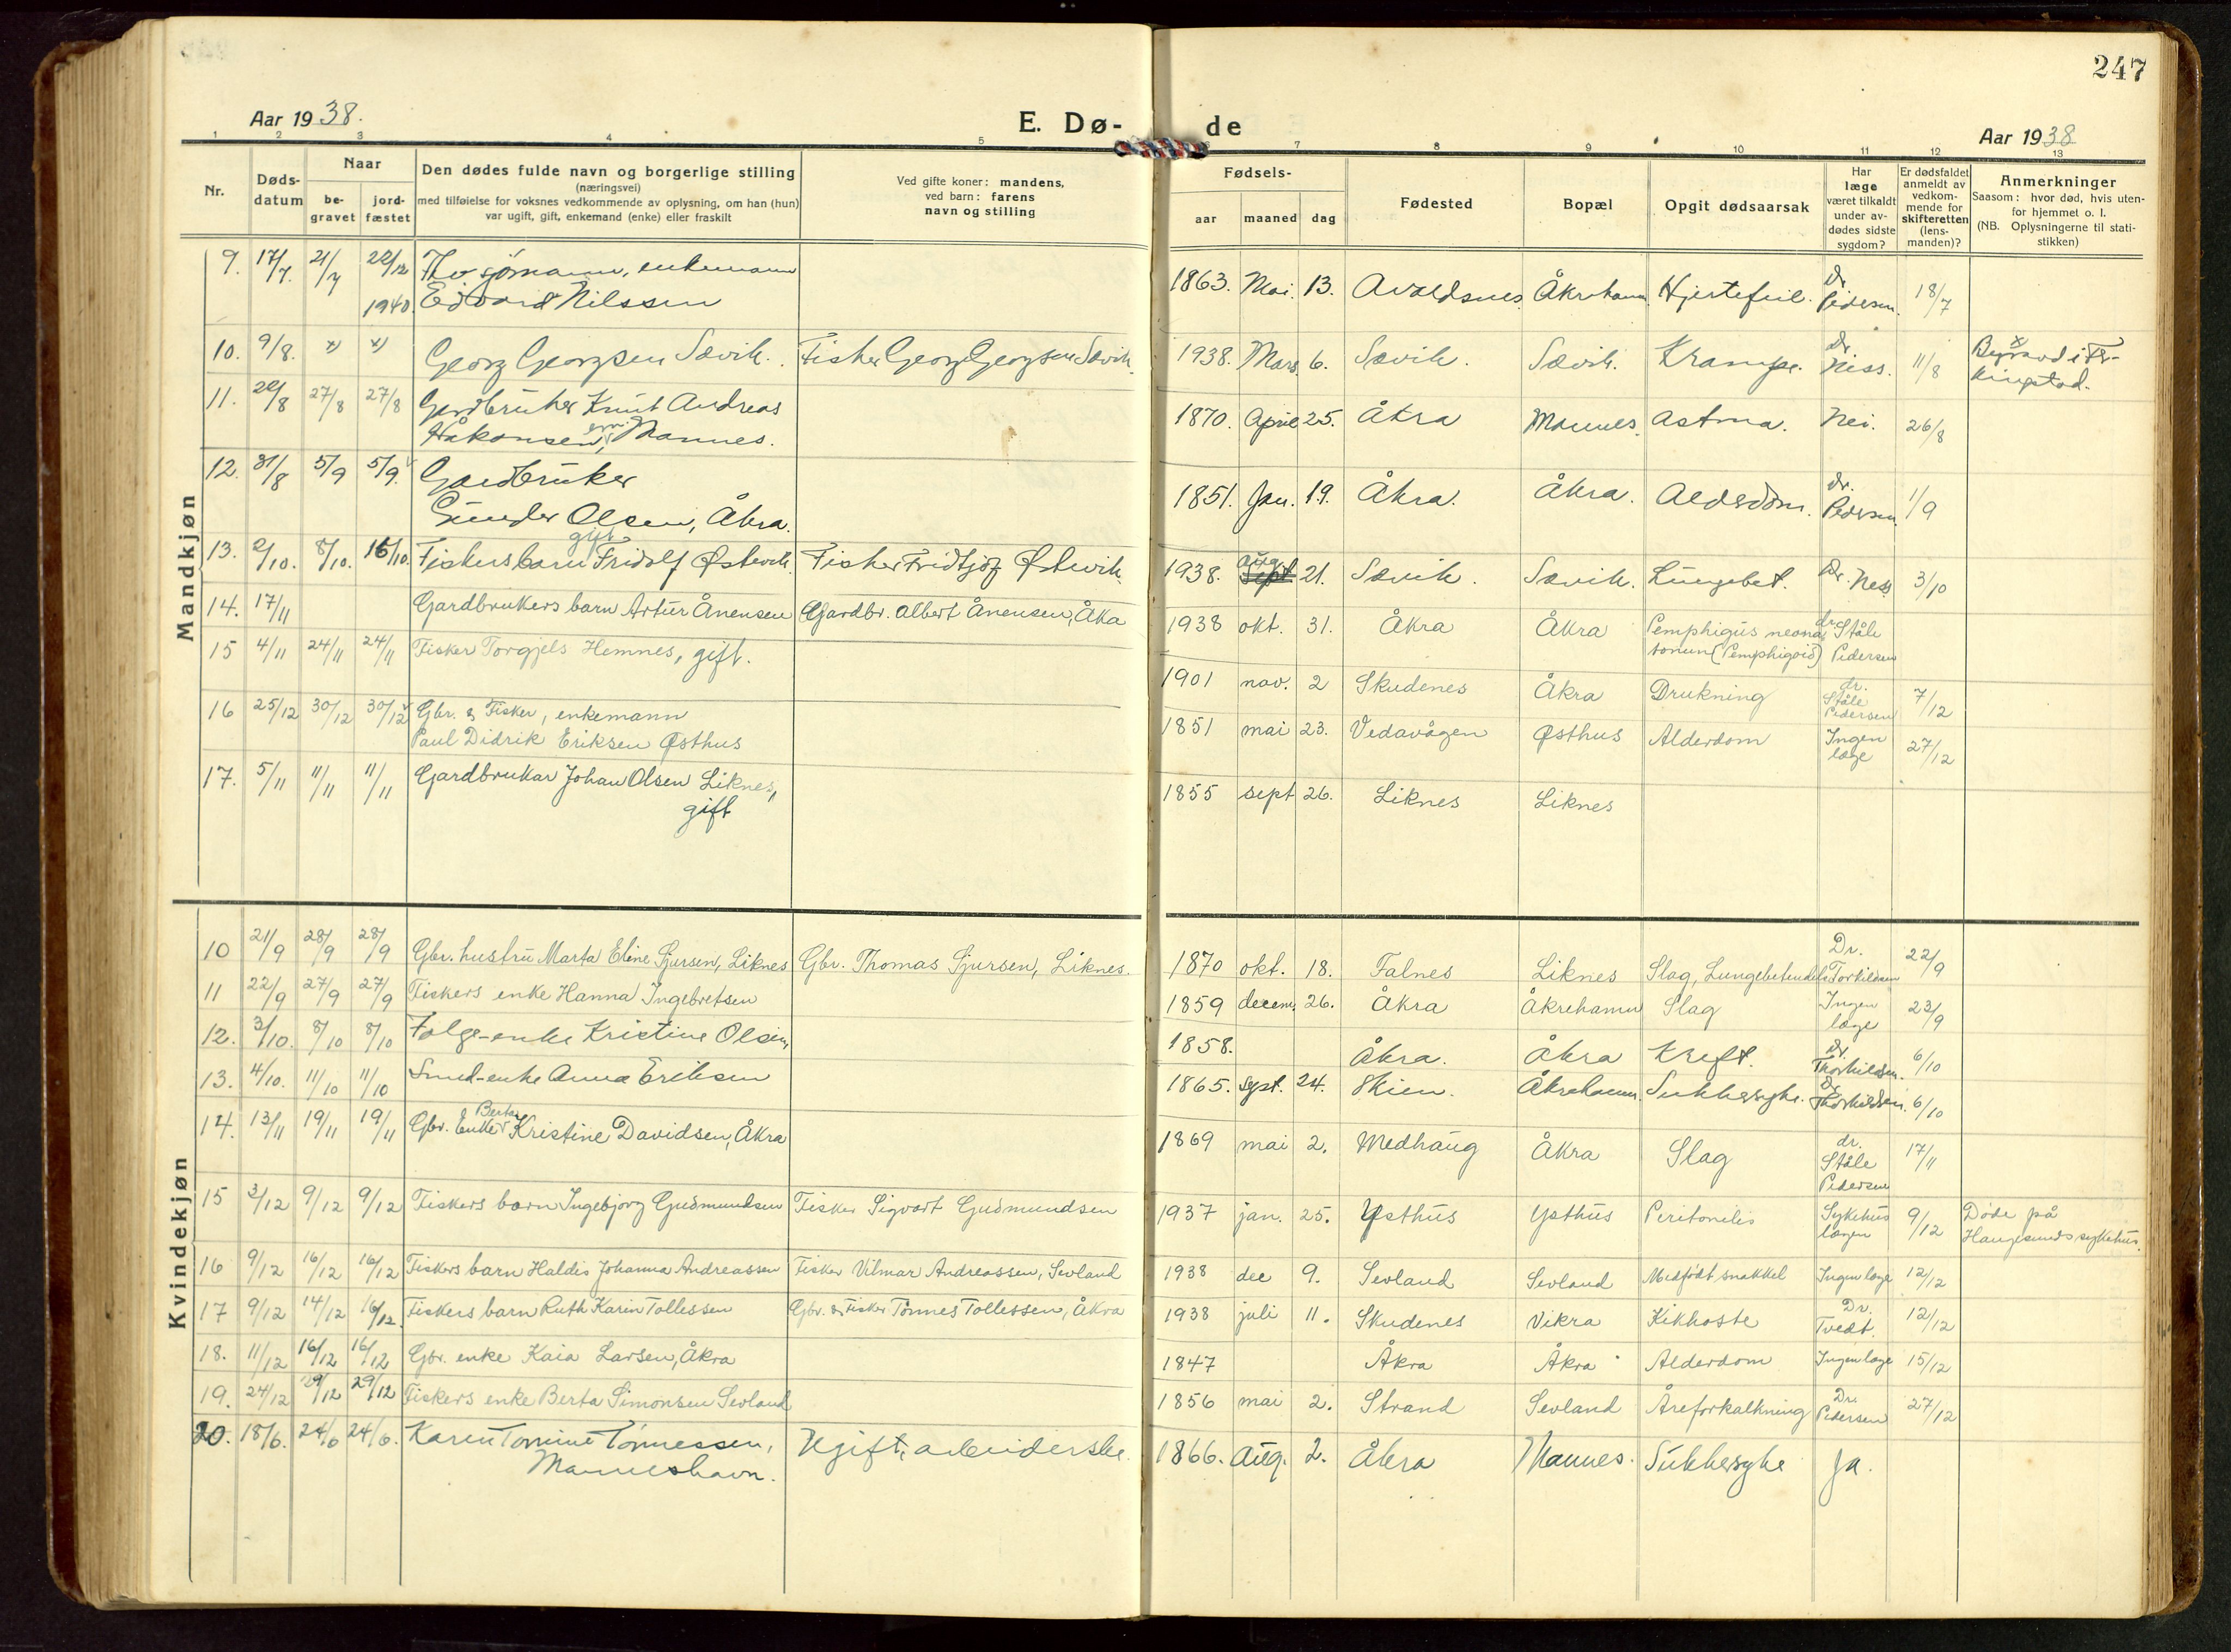 247
Aar 1938.
E. Dø-
de
Aar 1938
1 2 3 4 5 6 7 8 9 10 11 12 13
Nr.
Døds-
datum
Naar
be-
gravet
jord-
fæstet
Den dødes fulde navn og borgerlige stilling
(næringsvei)
med tilføielse for voksnes vedkommende av oplysning, om han (hun)
var ugift, gift, enkemand (enke) eller fraskilt
Ved gifte koner: mandens,
ved barn: farens
navn og stilling
Fødsels-
aar
maaned
dag
Fødested
Bopæl
Opgit dødsaarsak
Har
læge
været tilkaldt
under av-
dødes sidste
sygdom?
Er dødsfaldet
anmeldt av
vedkom-
mende for
skifteretten
(lens-
manden)?
Anmerkninger
Saasom: hvor død, hvis uten-
for hjemmet o. l.
(NB. Oplysningerne til stati-
stikken)
Mandkjøn
9. 17/7. 21/7 22/12 1940. sjømann, enkemann
Edvard Nilssen 1863. Mai. 13. Avaldsnes. Åkrehamn. Hjertefeil. Dr. Pedersen. 18/7
10. 9/8. x) x) Georg Georgsen Sævik. Fisker Georg Georgsen Sævik. 1938. Mars. 6. Sævik. Sævik. Krampe. dr. Ness. 11/8 x Begravd i Fer-
kingstad.
11. 20/8 27/8 27/8 Gardbruker Knut Andreas
Håkonsen, em. Mannes. 1870. April 25. Åkra Mannes. Astma. Nei. 26/8
12. 31/8 5/9 5/9. Gardbruker
Gunder Olsen, Åkra.
gift 1851. Jan. 19. Åkra. Åkra. Alderdom. dr. Pedersen 1/9
13. 2/10. 8/10. 16/10. Fiskers barn Fridolf Østevik. Fisker Fridtjof Østevik. 1938. Aug. Sept 21. Sævik. Sævik. Lungebet. Dr. Ness 3/10
14. 17/11 Gardbrukers barn Artur Ånensen Gardbr. Albert Ånensen, Åka 1938 okt. 31. Åkra Åkra Pemphigus neona-
torum (Pemphigoid) dr. Ståle Pedersen
15 4/11 24/11 24/11 Fisker Torgjels Hemnes, gift. 1901 nov. 2 Skudenes Åkra Drukning dr. Ståle Pedersen 7/12
16 25/12 30/12 30/12 Gbr. & Fisker, enkemann
Paul Didrik Eriksen Østhus 1851 mai 23. Vedavågen Østhus Alderdom Ingen læge 27/12
17. 5/11 11/11 11/11 Gardbrukar Johan Olsen Liknes,
gift 1855 sept 26. Liknes Liknes
Kvindekjøn
10 21/9 28/9 28/9 Gbr. hustru Marta Eline Sjursen, Liknes Gbr. Thomas Sjursen, Liknes. 1870 okt. 18. Falnes Liknes Slag, Lungebetendelse Dr. Torkildsen 22/9
11 22/9 27/9 27/9 Fiskers enke Hanna Ingebretsen 1859 decem. 26. Åkra Åkrehamn Slag Ingen læge 23/9
12. 3/10. 8/10 8/10 Følge-enke Kristine Olsen 1858. Åkra. Åkra Kreft. dr. Thorkildsen. 6/10
13. 4/10. 11/10 11/10 Smed-enke Anna Eriksen 1865. Sept. 24. Skien. Åkrehamn. Sukkersyke. Dr. Thorkildsen. 6/10
14. 13/11 19/11 19/11 Gbr. Enke Berta Kristine Davidsen, Åkra 1869 mai 2. Medhaug Åkra Slag dr. Ståle Pedersen 17/11
15 3/12 9/12 9/12 Fiskers barn Ingebjorg Gudmundsen Fisker Sigvart Gudmundsen 1937 jan. 25. Østhus Østhus Peritonitis Sykehus lægen 9/12 Døde på
Haugesunds sykehus.
16 9/12 16/12 16/12 Fiskers barn Haldis Johanna Andreassen Fisker Vilmar Andreassen, Sevland 1938 dec 9. Sevland Sevland Medfødt snakkel Ingen læge 12/12
17 9/12 14/12 16/12. Fiskers barn Ruth Karin Tollessen Gbr. & Fisker Tønnes Tollessen, Åkra 1938 juli 11. Skudenes Vikra Kikhoste Dr. Tvedt. 12/12
18. 11/12 16/12 16/12 Gbr. enke Kaia Larsen, Åkra 1847 Åkra Åkra Alderdom Ingen læge 15/12
19. 24/12 29/12 29/12 Fiskers enke Berta Simonsen Sevland 1856 mai 2. Strand Sevland Åreforkalkning Dr. Pedersen 27/12
20. 18/6. 24/6 24/6. Karen Tomine Tønnessen,
Manneshavn. Ugift, arbeiderske. 1866. Aug. 2. Åkra Mannes. Sukkersyke Ja.